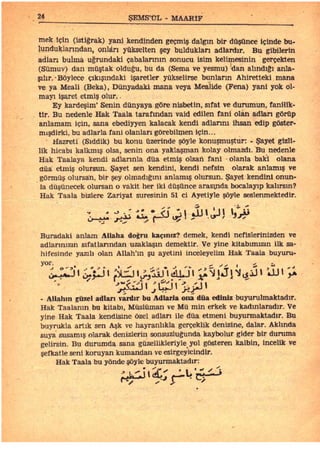 24 ŞEMS'ÜL - MAARİF
mek için (istiğrak) yani kendinden geçmiş dalgın bir düşünce içinde bu-
lunduklarından, onları yükselten şey buldukları adlardır. Bu gibilerin
adları bulma uğrundaki çabalarının sonucu isim kelimesinin gerçekten
(Sümuv) dan müştak olduğu, bu da (Sema ve yesmu) dan alındığı anla-
şılır. Böylece çıkışındaki işaretler yükselirse bunların Ahiretteki mana
ve ya Meali (Beka), Dünyadaki mana veya Mealide (Fena) yani yok ol-
mayı işaret etmiş olur.
Ey kardeşim' Senin dünyaya göre nisbetin, sıfat ve durumun, fanilik-
tir. Bu nedenle Hak Taala tarafından vaid edilen fani olan adları görüp
anlamam için, sana ebediyyen kalacak kendi adlarını ihsan edip göster-
muşdirki, bu adlarla fani olanları görebilmen için...
Hazreti (Sıddik) bu konu üzerinde şöyle konuşmuştur: - Şayet gizli-
lik hicabı kalkmış olsa, senin ona yaklaşman kolay olmazdı. Bu nedenle
Hak Taalayı kendi adlarınla düa etmiş olsan fani olanla baki olana
düa etmiş olursun. Şayet sen kendini, kendi nefsin olarak anlamış ve
görmüş olursan, bir şey olmadığını anlamış olursun. Şayet kendini onun-
la düşünecek olursan o vakit her iki düşünce arasında bocalayıp kalırsın?
Hak Taala bizlere Zariyat suresinin 51 ci Ayetiyle şöyle seslenmektedir.
Buradaki anlam Allaha doğru kaçınız? demek, kendi nefislerinizden ve
adlarınızın sıfatlarından uzaklaşın demektir. Ve yine kitabımızın ilk sa-
hifesinde yazılı olan Allah'ın şu ayetini inceleyelim Hak Taala buyuru-
yor.
- Allahın güzel adları vardır bu Adlarla ona düa ediniz buyurulmaktadır.
Hak Taalanın bu kitabı, Müslüman ve Mü min erkek ve kadınlaradır. Ve
yine Hak Taala kendisine özel adları ile düa etmeni buyurmaktadır. Bu
buyrukla artık sen Aşk ve hayranlıkla gerçeklik denizine, dalar. Aklında
suya susamış olarak denizlerin sonsuzluğunda kaybolur gider bir duruma
gelirsin. Bu durumda sana güzelilkleriyle yol gösteren kalbin, incelik ve
şefkatle seni koruyan kumandan ve esirgeyicindir.
Hak Taala bu yönde şöyle buyurmaktadır: